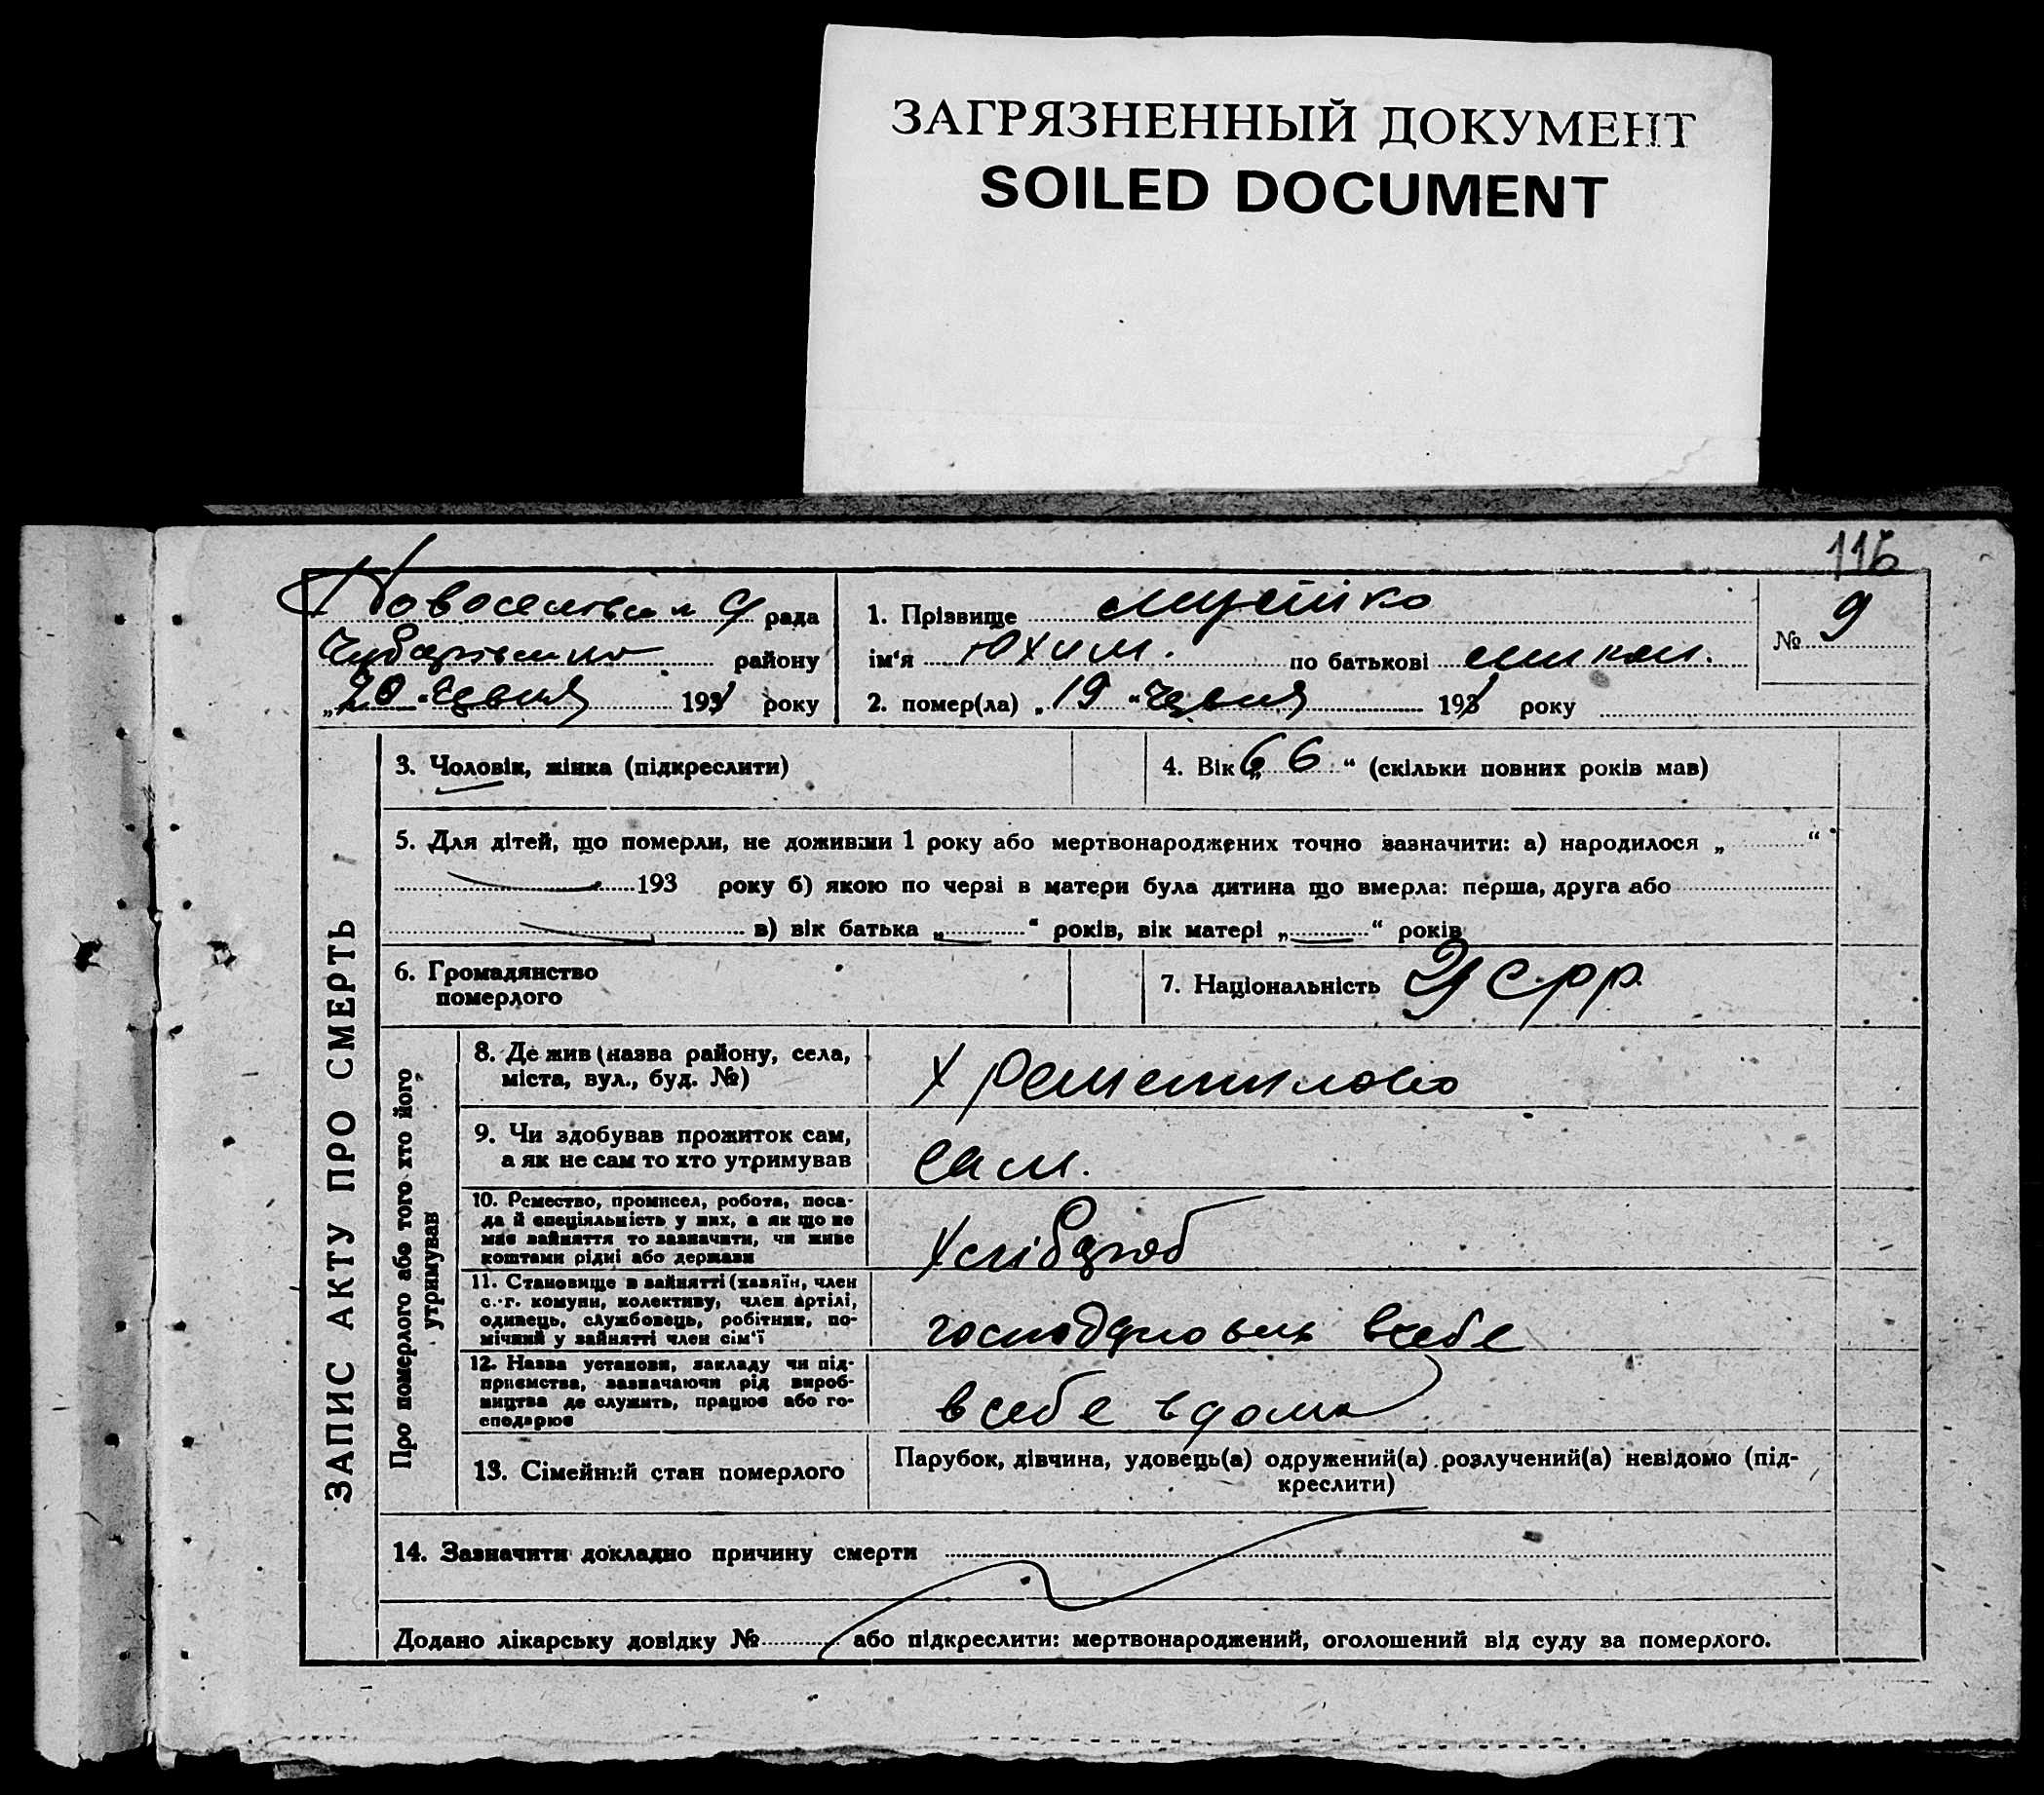 ЗАГРЯЗНЕННЫЙ ДОКУМЕНТ
SOILED DOCUMENT
116
рада
району
„20“ 193 року
1. Прізвище
ім'я Юхим. по батькові
2. помер(ла) „19“ 193 року
№ 9
ЗАПИС АКТУ ПРО СМЕРТЬ
3. Чоловік, жінка (підкреслити)
4. Вік „66“ (скільки повних років мав)
5. Для дітей, що померли, не доживши 1 року або мертвонароджених точно зазначити: а) народилося „ “
193 року б) якою по черзі в матери була дитина що вмерла: перша, друга або
в) вік батька „ “ років, вік матері „ “ років
6. Громадянство
померлого
7. Національність УСРР
Про померлого або того хто його
утримував
8. Де жив (назва району, села,
міста, вул., буд. №)
х
9. Чи здобував прожиток сам,
а як не сам то хто утримував
сам.
10. Ремество, промисел, робота, поса-
да й спеціяльність у них, а як що не
має зайняття то зазначити, чи живе
коштами рідні або держави
Хлібороб
11. Становище в зайнятті (хазяїн, член
с.-г. комуни, колективу, член артілі,
одинець, службовець, робітник, по-
мічний у зайнятті член сім'ї
всебе
12. Назва установи, закладу чи під-
приємства, зазначаючи рід вироб-
ництва де служить, працює або го-
сподарює
всебе вдома
13. Сімейний стан померлого
Парубок, дівчина, удовець(а) одружений(а) розлучений(а) невідомо (під-
креслити)
14. Зазначити докладно причину смерти
Додано лікарську довідку № або підкреслити: мертвонароджений, оголошений від суду за померлого.